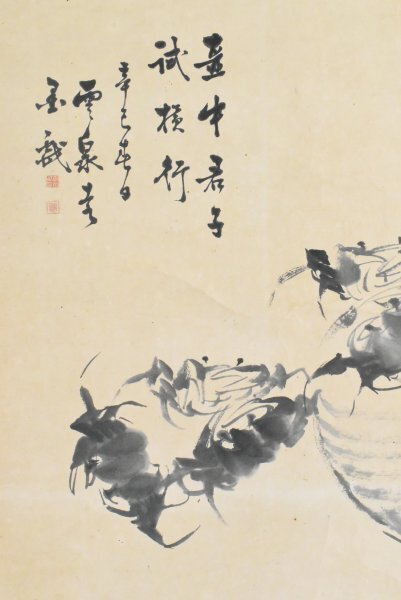 壺中君子
試橫行
辛巳春日
雲泉老
墨戲